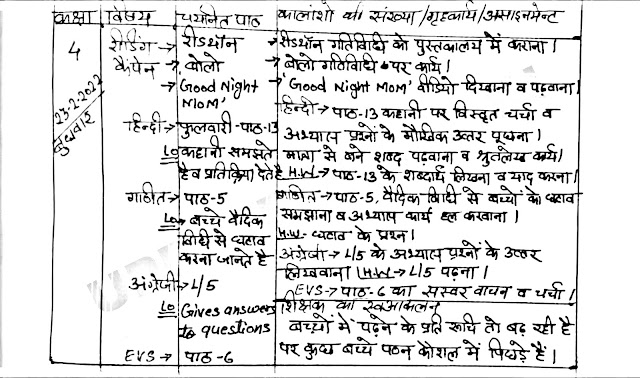 कक्षा विषय चयनित पाठ कालांशो की संख्या/गृहकार्य/असाइनमेन्ट
4 रीडिंग→ रीडथॉन →रीडथॉन गतिविधी को पुस्तकालय में कराना।
23-2-2022 बुधवार
कैंपेन → बोलो → बोलो गतिविधी पर कार्य।
→'Good Night Mom' → 'Good Night Mom' वीडियो दिखाना व पढ़वाना।
हिन्दी→ फुलवारी-पाठ-13 हिन्दी→ पाठ-13 कहानी पर विस्तृत चर्चा व
अभ्यास प्रश्नों के मौखिक उत्तर पूछना।
LO कहानी समझते मात्रा से बने शब्द पढ़वाना व श्रुतलेख कार्य।
है व प्रतिक्रिया देते है H.W→ पाठ-13 के शब्दार्थ लिखना व याद करना।
गणित→ पाठ-5 गणित→पाठ-5, वैदिक विधी से बच्चों के घटाव
LO→ बच्चे वैदिक समझाना व अभ्यास कार्य हल करवाना।
विधी से घटाव H.W→ घटाव के प्रश्न।
करना जानते है अंग्रेजी→ L/5 के अभ्यास प्रश्नों के उत्तर
लिखवाना। H.W→ L/5 पढ़ना।
अंग्रेजी→ L/5 EVS→ पाठ-6 का सस्वर वाचन व चर्चा।
LO Gives answers शिक्षक का स्वआकलन
to questions बच्चों में पढ़ने के प्रति रूचि तो बढ़ रही है
EVS→ पाठ-6 पर कुछ बच्चे पठन कौशल में पिछड़े हैं।